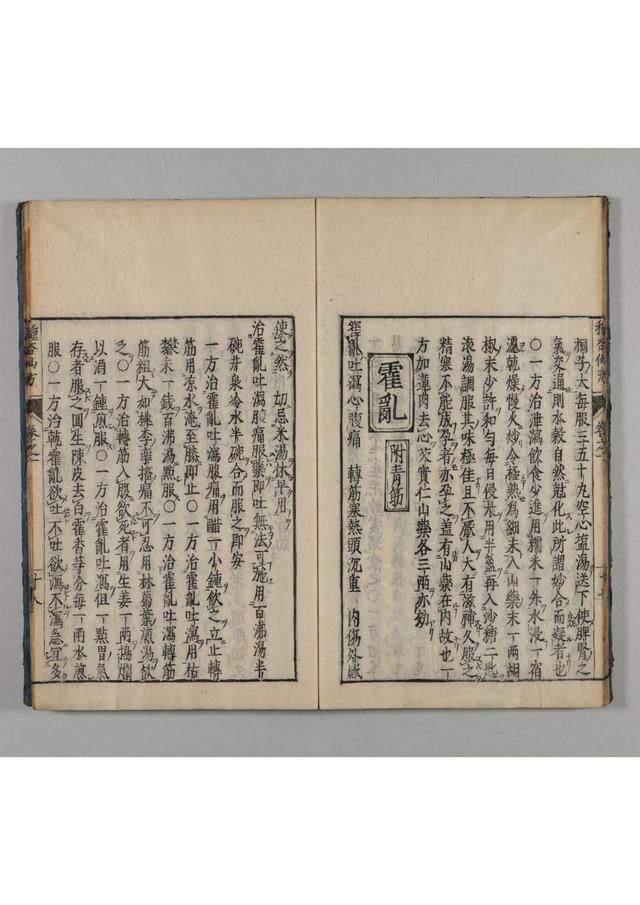 桐子大每服三五十九空心塩湯送下使脾腎之
氣交通則水穀自然尅化此所謂妙合而凝者也
〇一方治泄瀉飲食少進用糯米一升水浸一宿
瀝乾燥慢火炒令極熟爲細末入山藥末一兩胡
椒末少許和勻每日侵晨用半盞再入沙糖二匙
滚湯調服其味極佳且不厭人大有滋補久服之
精寒不能成孕者亦孕之盖有山藥在内故也一
方加蓮肉去心芡實仁山藥各三兩亦効
霍亂
附青筋
霍亂吐瀉心腹痛 轉筋寒熱頭沉重 内傷外感
使之然 切忌米湯休早用
治霍亂吐瀉腹痛服藥即吐無法可施用百沸湯半
碗井泉冷水半碗合而服之即安
一方治霍亂吐瀉腹痛用醋一小鍾飲之立止轉
筋用凉水淹至膝即止〇一方治霍亂吐瀉用枯
礬末一錢百沸湯點服〇一方治霍亂吐瀉轉筋
筋粗大如桃李攣搐痛不可忍用林葛葉煎湯飲
之〇一方治轉筋入腹欲死者用生姜一兩搗爛
以酒一鍾煎服〇一方治霍亂吐瀉但一點胃氣
存者服之回生陳皮去白藿香等分每一兩水煎
服〇一方治乾霍亂欲吐不吐欲瀉不瀉急宜多
種杏仙方
卷之一
十八